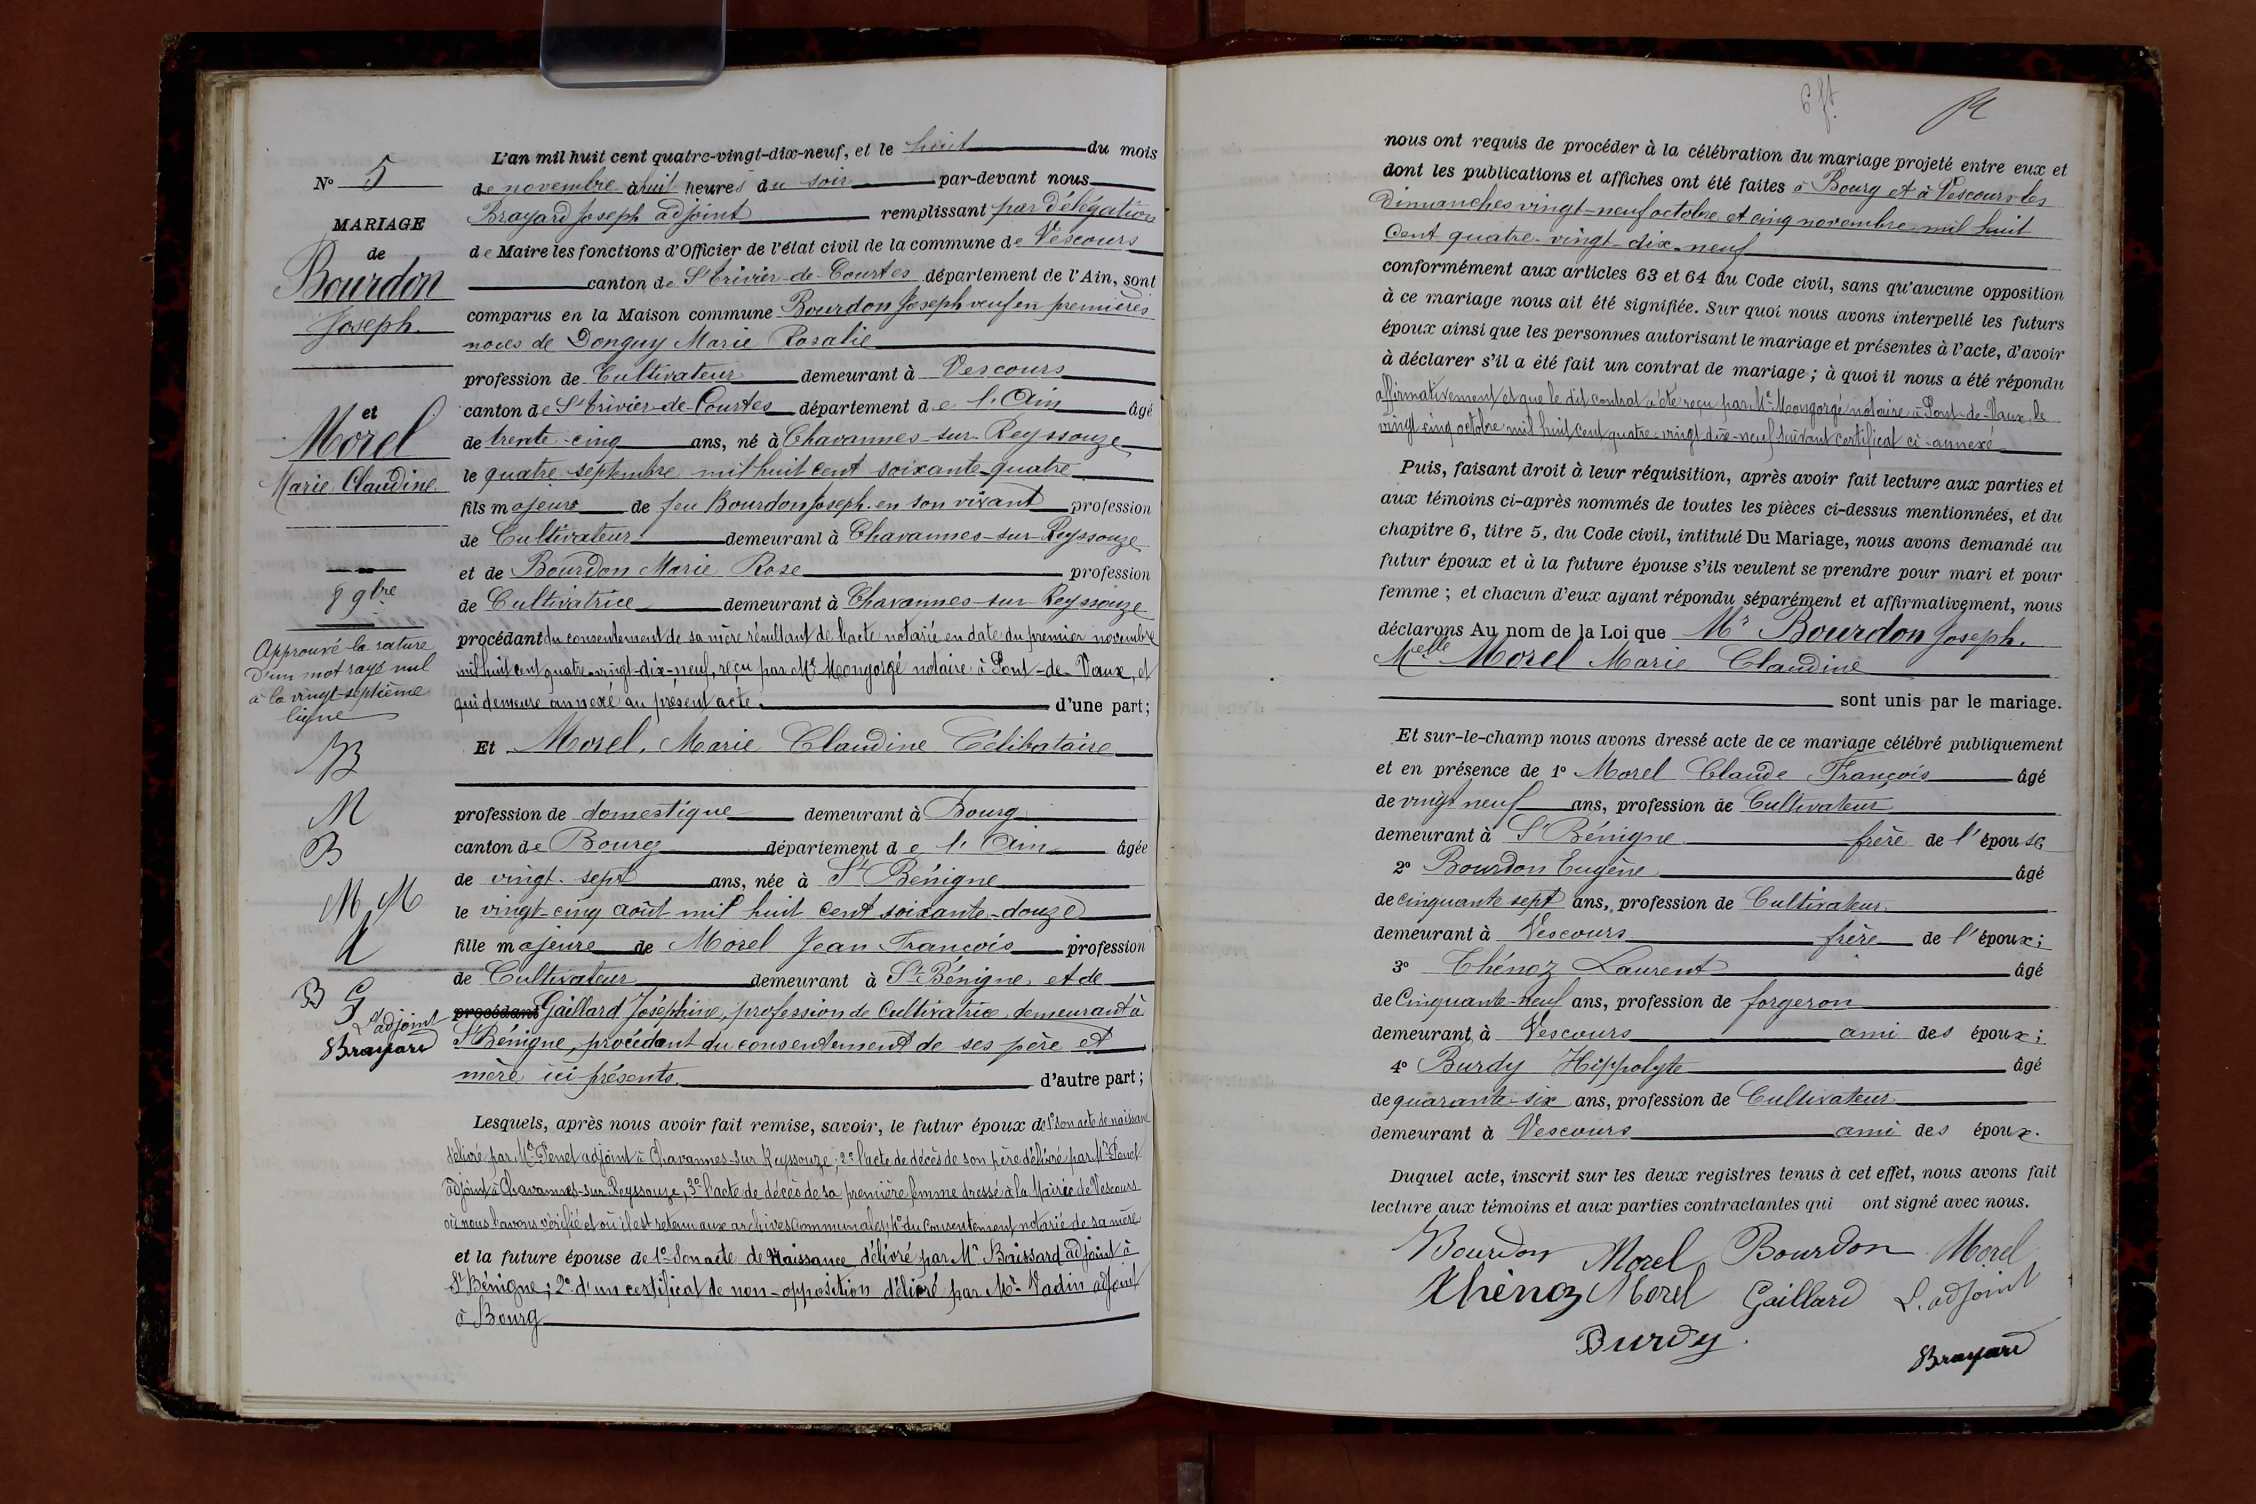 N° 5
MARIAGE
de
Bourdon
Joseph.
et
Morel
Marie Claudine
8 9bre
Approuvé la rature
d'un mot rayé nul
à la vingt-septième
ligne
B
M
B
M M
B G
L'adjoint
Brayard
L'an mil huit cent quatre-vingt-dix-neuf, et le huit du mois
de novembre à huit heures du soir par-devant nous
Brayard Joseph adjoint remplissant par délégation
de Maire les fonctions d'Officier de l'état civil de la commune de Vescours
canton de St Trivier-de-Courtes département de l'Ain, sont
comparus en la Maison commune Bourdon Joseph veuf en premières
noces de Donguy Marie Rosalie
profession de Cultivateur demeurant à Vescours
canton de St Trivier-de-Courtes département de l'Ain âgé
de trente-cinq ans, né à Chavannes-sur-Reyssouze
le quatre septembre mil huit cent soixante-quatre
fils majeur de feu Bourdon Joseph en son vivant profession
de Cultivateur demeurant à Chavannes-sur-Reyssouze
et de Bourdon Marie Rose profession
de Cultivatrice demeurant à Chavannes-sur-Reyssouze
procédant du consentement de sa mère résultant de l'acte notarié en date du premier novembre
mil huit cent quatre-vingt-dix-neuf, reçu par Me Mongorgé notaire à Pont-de-Vaux, et
qui demeure annexé au présent acte. d'une part;
Et Morel, Marie Claudine Célibataire
profession de domestique demeurant à Bourg
canton de Bourg département de l'Ain âgée
de vingt-sept ans, née à St Bénigne
le vingt-cinq août mil huit cent soixante-douze
fille majeure de Morel Jean François profession
de Cultivateur demeurant à St Bénigne et de
procédant Gaillard Joséphine, profession de Cultivatrice demeurant à
St Bénigne, procédant du consentement de ses père et
mère ici présents. d'autre part;
Lesquels, après nous avoir fait remise, savoir, le futur époux de 1° son acte de naissance
délivré par Mr Penet adjoint à Chavannes-sur Reyssouze; 2° l'acte de décès de son père délivré par Mr Penet
adjoint à Chavannes-sur Reyssouze, 3° l'acte de décès de sa première femme dressé à la Mairie de Vescours
où nous l'avons vérifié et où il est retenu aux archives communales; 4° du consentement notarié de sa mère
et la future épouse de 1° Son acte de Naissance délivré par Mr Boissard adjoint à
St Bénigne; 2° d'un certificat de non-opposition délivré par Mr Vadin adjoint
à Bourg
nous ont requis de procéder à la célébration du mariage projeté entre eux et
dont les publications et affiches ont été faites à Bourg et à Vescours les
Dimanches vingt-neuf octobre et cinq novembre mil huit
Cent quatre-vingt-dix-neuf
conformément aux articles 63 et 64 du Code civil, sans qu'aucune opposition
à ce mariage nous ait été signifiée. Sur quoi nous avons interpellé les futurs
époux ainsi que les personnes autorisant le mariage et présentes à l'acte, d'avoir
à déclarer s'il a été fait un contrat de mariage; à quoi il nous a été répondu
affirmativement et que le dit contrat a été reçu par Me Mongorgé notaire à Pont-de-Vaux, le
vingt cinq octobre mil huit cent quatre-vingt dix-neuf suivant certificat ci-annexé
Puis, faisant droit à leur réquisition, après avoir fait lecture aux parties et
aux témoins ci-après nommés de toutes les pièces ci-dessus mentionnées, et du
chapitre 6, titre 5, du Code civil, intitulé Du Mariage, nous avons demandé au
futur époux et à la future épouse s'ils veulent se prendre pour mari et pour
femme; et chacun d'eux ayant répondu séparément et affirmativement, nous
déclarons Au nom de la Loi que Mr Bourdon Joseph.
Melle Morel Marie Claudine
sont unis par le mariage.
Et sur-le-champ nous avons dressé acte de ce mariage célébré publiquement
et en présence de 1° Morel Claude François âgé
de vingt neuf ans, profession de Cultivateur
demeurant à St Bénigne frère de l'épouse
2° Bourdon Eugène âgé
de cinquante sept ans, profession de Cultivateur
demeurant à Vescours frère de l'époux;
3° Thénoz Laurent âgé
de Cinquante-neuf ans, profession de forgeron
demeurant à Vescours ami des époux;
4° Burdy Hippolyte âgé
de quarante-six ans, profession de Cultivateur
demeurant à Vescours ami des époux.
Duquel acte, inscrit sur les deux registres tenus à cet effet, nous avons fait
lecture aux témoins et aux parties contractantes qui ont signé avec nous.
Bourdon Morel Bourdon Morel
Thénoz Morel Gaillard L'adjoint
Burdy Brayard